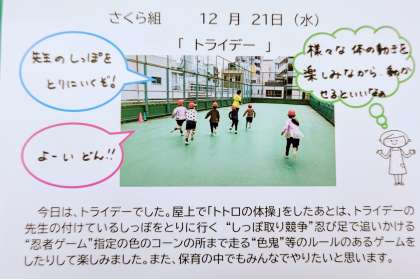 さくら組　12 月 21日（水）
「 トライデー 」
先生の しっぽを
とりにいくぞ！
様々な 体の動きを
楽しみながら、動か
せるといいなぁ
よーい どん!!
今日は、トライデーでした。屋上で「トトロの体操」をしたあとは、トライデーの
先生の付けているしっぽをとりに行く “しっぽ取り競争”忍び足で追いかける
“忍者ゲーム”指定の色のコーンの所まで走る“色鬼”等のルールのあるゲームを
したりして楽しみました。また、保育の中でもみんなでやりたいと思います。